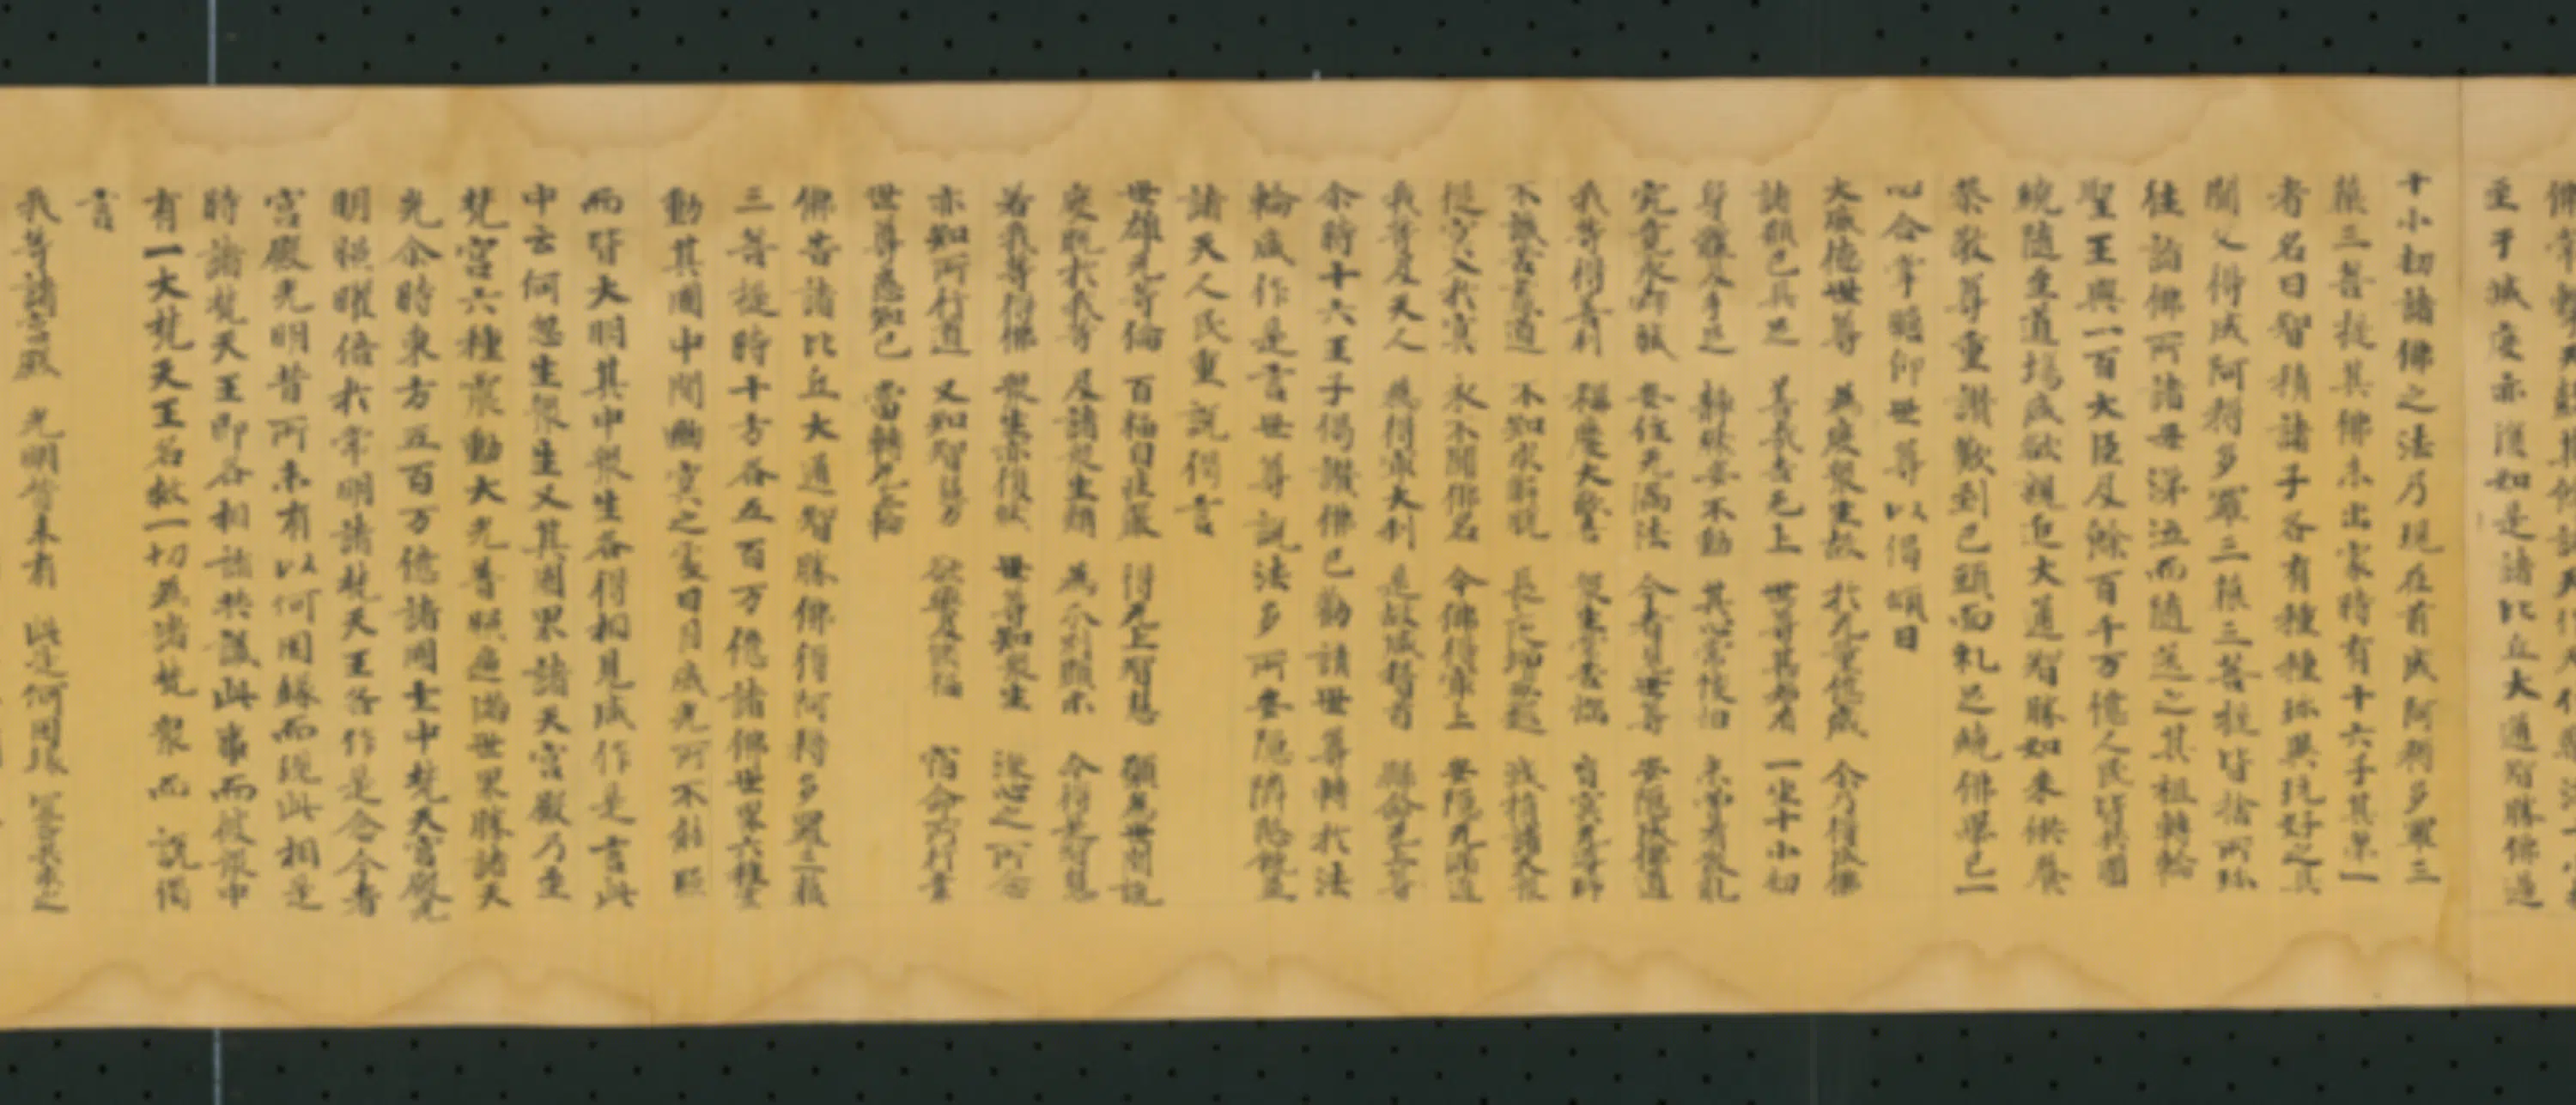 至于滅度亦復如是諸比丘大通智勝佛過
十小劫諸佛之法乃現在前成阿耨多羅三
藐三菩提其佛未出家時有十六子其第一
者名曰智積諸子各有種種珎異玩好之具
聞父得成阿耨多羅三藐三菩提皆捨所珎
往詣佛所諸母涕泣而隨送之其祖轉輪
聖王與一百大臣及餘百千万億人民皆共圍
繞隨至道場咸欲親近大通智勝如来供養
恭敬尊重讃歎到已頭面礼足繞佛畢已一
心合掌瞻仰世尊以偈頌曰
大威德世尊 為度衆生故 於无量億歳 尒乃得成佛
諸願已具足 善哉吉无上 世尊甚希有 一坐十小劫
身體及手足 靜然安不動 其心常惔怕 未曽有散乱
究竟永寂滅 安住无漏法 今者見世尊 安隱成佛道
我等得善利 稱慶大歡喜 衆生常苦惱 盲冥无導師
不識苦盡道 不知求解脱 長夜增惡趣 減損諸天衆
從冥入於冥 永不聞佛名 今佛得最上 安隱无漏道
我等及天人 為得最大利 是故咸稽首 歸命无上尊
尒時十六王子偈讃佛已勸請世尊轉於法
輪咸作是言世尊説法多所安隱憐愍饒益
諸天人民重説偈言
世雄无等倫 百福自莊嚴 得无上智慧 願為世間説
度脱於我等 及諸衆生類 為分別顯示 令得是智慧
若我等得佛 衆生亦復然 世尊知衆生 深心之所念
亦知所行道 又知智慧力 欲樂及修福 宿命所行業
世尊悉知已 當轉无上輪
佛告諸比丘大通智勝佛得阿耨多羅三藐
三菩提時十方各五百万億諸佛世界六種震
動其國中間幽冥之處日月威光所不能照
而皆大明其中衆生各得相見咸作是言此
中云何忽生衆生又其國界諸天宮殿乃至
梵宮六種震動大光普照遍滿世界勝諸天
光尒時東方五百万億諸國土中梵天宮殿光
明照曜倍於常明諸梵天王各作是念今者
宮殿光明昔所未有以何因緣而現此相是
時諸梵天王即各相詣共議此事而彼衆中
有一大梵天王名救一切為諸梵衆而説偈
言
我等諸宮殿 光明昔未有 此是何因緣 宜各共求之